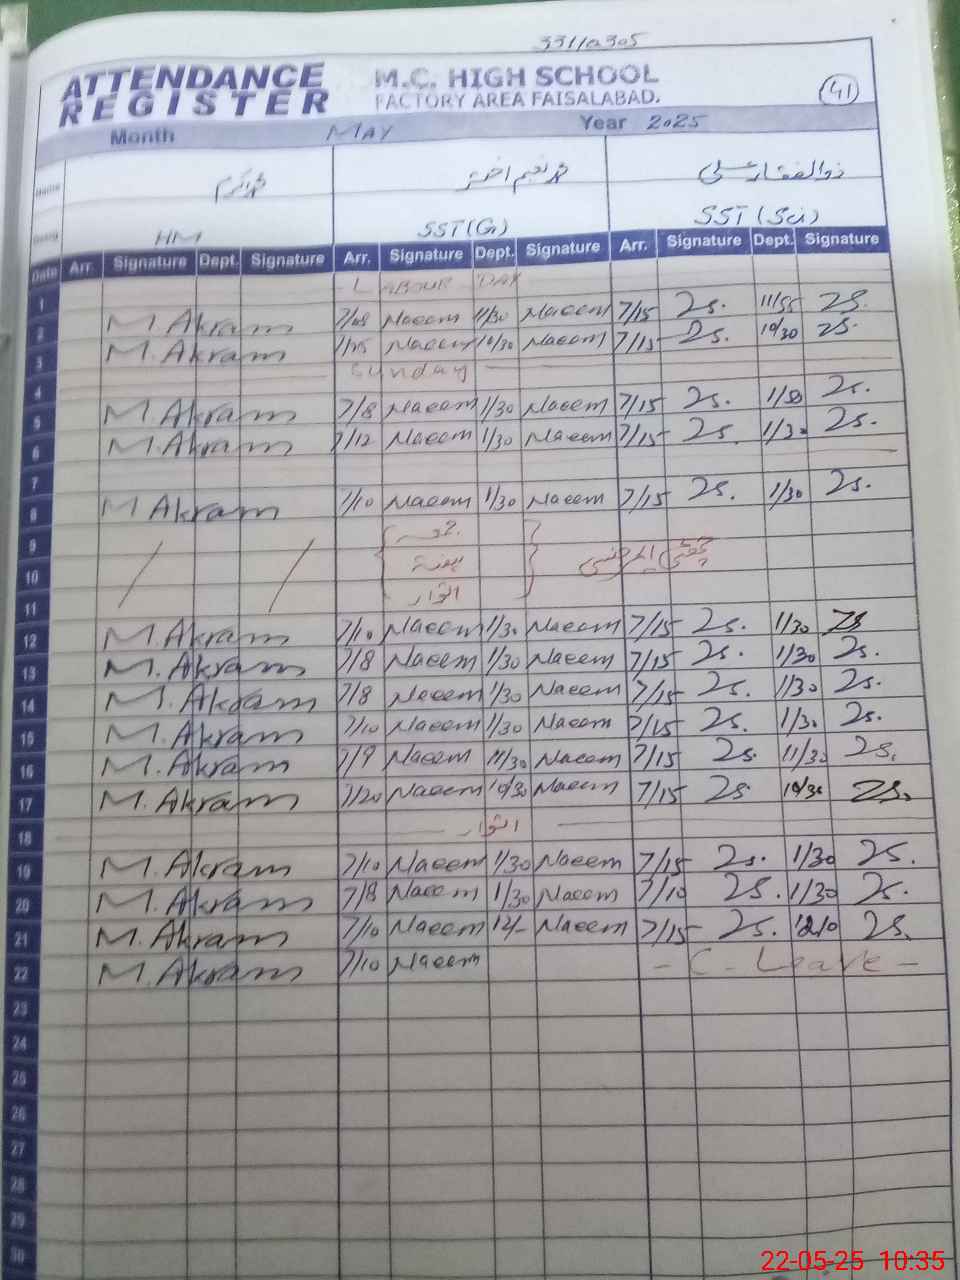 33110305
ATTENDANCE REGISTER
M.C. HIGH SCHOOL
FACTORY AREA FAISALABAD.
41
Month MAY Year 2025
Name محمد اکرم محمد نعیم اختر ذوالفقار علی
Desig HM SST(G) SST(Sci)
Date Arr. Signature Dept. Signature Arr. Signature Dept. Signature Arr. Signature Dept. Signature
1 - LABOUR DAY
2 M. Akram 7/08 Naeem 11/30 Naeem 7/15 11/55
3 M. Akram 7/15 Naeem 10/30 Naeem 7/15 10/30
4 Sunday
5 M. Akram 7/8 Naeem 1/30 Naeem 7/15 1/30
6 M. Akram 7/12 Naeem 1/30 Naeem 7/15 1/30
7
8 M Akram 7/10 Naeem 1/30 Naeem 7/15 1/30
9 جمعہ
10 ہفتہ
11 اتوار
12 M. Akram 7/10 Naeem 1/30 Naeem 7/15 1/30
13 M. Akram 7/8 Naeem 1/30 Naeem 7/15 1/30
14 M. Akram 7/8 Naeem 1/30 Naeem 7/15 1/30
15 M. Akram 7/10 Naeem 1/30 Naeem 7/15 1/30
16 M. Akram 7/9 Naeem 11/30 Naeem 7/15 11/30
17 M. Akram 7/20 Naeem 10/30 Naeem 7/15 10/30
18 اتوار
19 M. Akram 7/10 Naeem 1/30 Naeem 7/15 1/30
20 M. Akram 7/8 Naeem 1/30 Naeem 7/10 1/30
21 M. Akram 7/10 Naeem 12/- Naeem 7/15
22 M. Akram 7/10 Naeem - C - Leave -
23
24
25
26
27
28
29
30
22-05-25 10:35